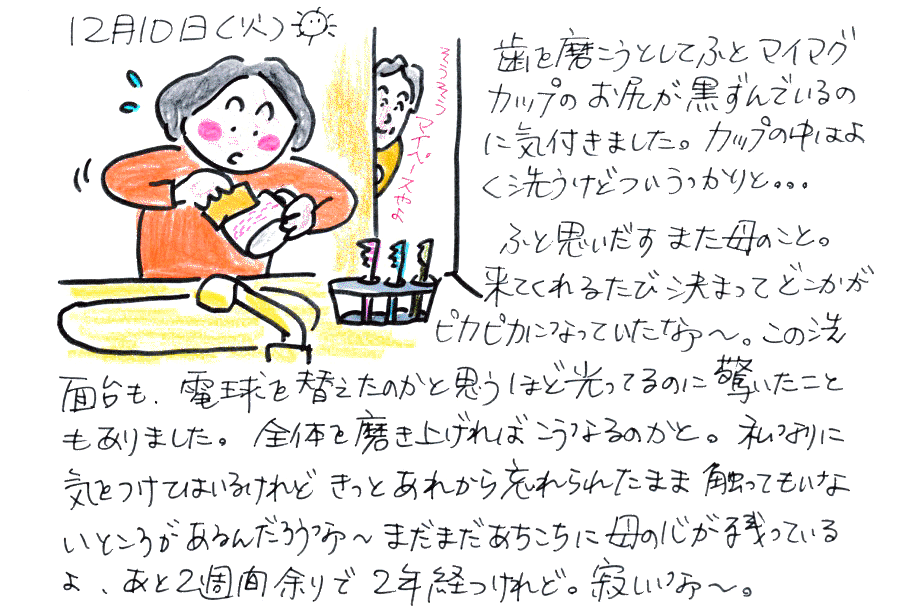 12月10日(火)
歯を磨こうとしてふとマイマグ
カップのお尻が黒ずんでいるの
に気付きました。カップの中はよ
く洗うけどついうっかりと...
ふと思いだすまた母のこと。
来てくれるたび決まってどこかが
ピカピカになっていたなァ〜。この洗
面台も、電球を替えたのかと思うほど光ってるのに驚いたこと
もありました。全体を磨き上げればこうなるのかと。私なりに
気をつけてはいるけれどきっとあれから忘れられたまま触ってもいな
いところがあるんだろうなァ〜まだまだあちこちに母の心が残っている
よ、あと2週間余りで2年経つけれど。寂しいなァ〜。
マイペースやな